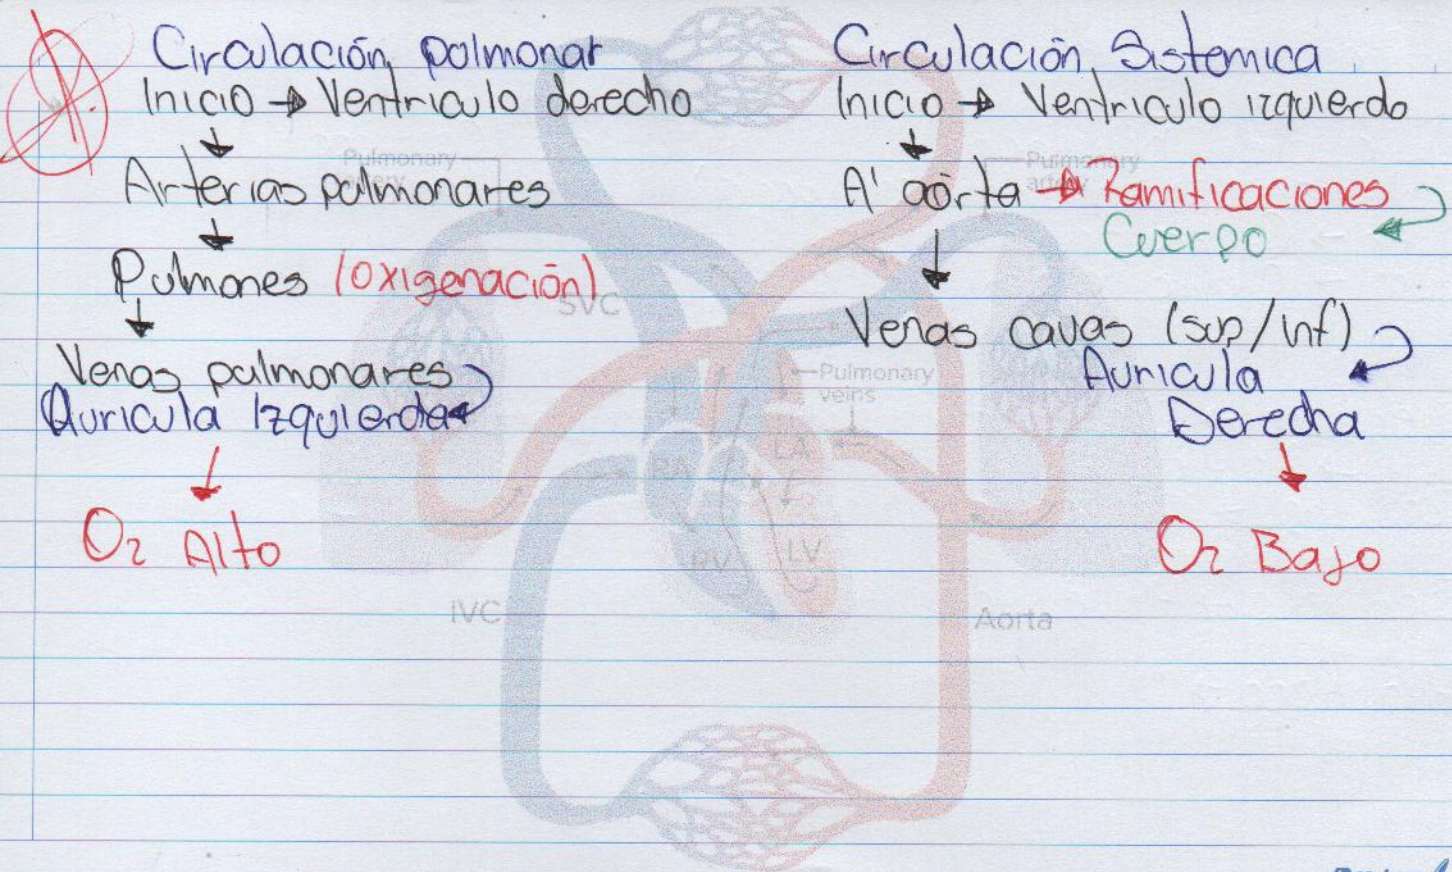 Circulación pulmonar
Inicio → Ventriculo derecho
Arterias pulmonares
Pulmones (oxigenación)
Venas pulmonares
Auricula Izquierda
O2 Alto
Circulación Sistemica
Inicio → Ventriculo izquierdo
A' aórta → Ramificaciones
Cuerpo
Venas cavas (sup/inf)
Auricula
Derecha
O2 Bajo
Pulmonary
artery
Pulmonary
artery
SVC
Pulmonary
veins
RA
LA
RV
LV
IVC
Aorta